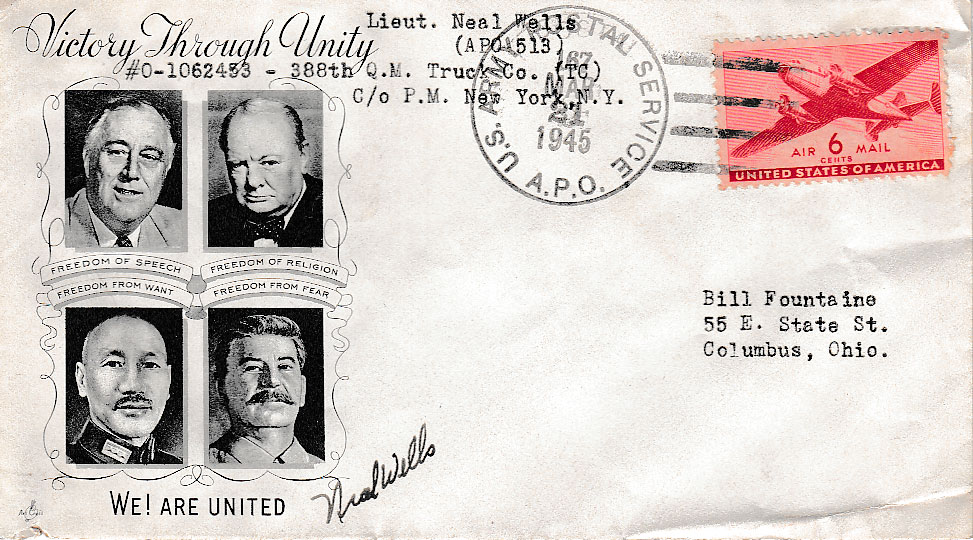 Victory Through Unity
Lieut. Neal Wells
(APO 513)
#O-1062453 - 388th Q.M. Truck Co. (TC)
C/o P.M. New York, N.Y.
U.S. ARMY POSTAL SERVICE
MAR
21
1945
A.P.O.
AIR 6 MAIL
CENTS
UNITED STATES OF AMERICA
FREEDOM OF SPEECH
FREEDOM OF RELIGION
FREEDOM FROM WANT
FREEDOM FROM FEAR
Bill Fountaine
55 E. State St.
Columbus, Ohio.
Neal Wells
WE! ARE UNITED